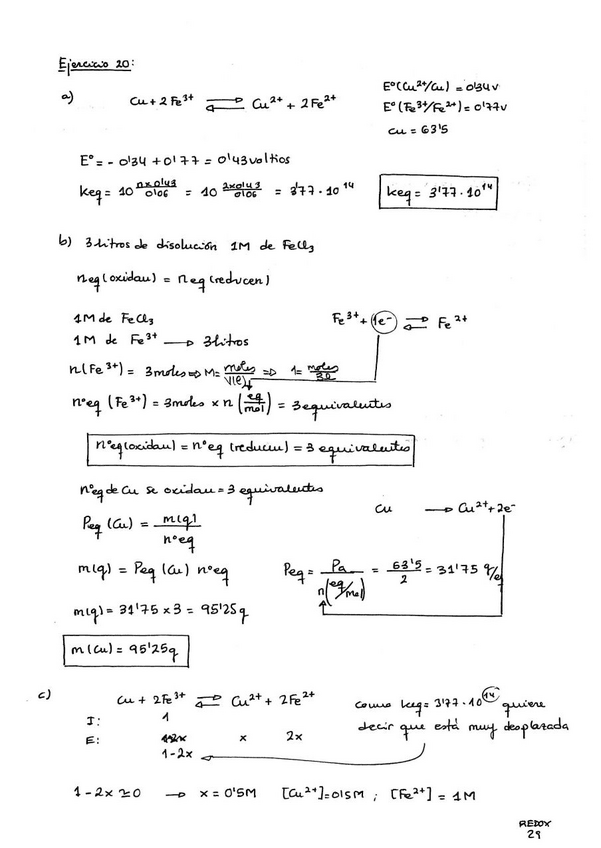 Ejercicio 20:
a) Cu + 2Fe³⁺ ⇌ Cu²⁺ + 2Fe²⁺
E°(Cu²⁺/Cu) = 0'34v
E°(Fe³⁺/Fe²⁺) = 0'77v
Cu = 63'5
E° = - 0'34 + 0'77 = 0'43 voltios
Keq = 10^(n×0'43/0'06) = 10^(2×0'43/0'06) = 3'77 · 10¹⁴
Keq = 3'77 · 10¹⁴
b) 3 litros de disolución 1M de FeCl₃
neq (oxidan) = neq (reducen)
1M de FeCl₃
1M de Fe³⁺ → 3 litros
Fe³⁺ + 1e⁻ ⇌ Fe²⁺
n(Fe³⁺) = 3 moles ⇒ M = moles/V(l) ⇒ 1 = moles/3l
nºeq (Fe³⁺) = 3 moles × n (eq/mol) = 3 equivalentes
nºeq (oxidan) = nºeq (reducen) = 3 equivalentes
nºeq de Cu se oxidan = 3 equivalentes
Cu → Cu²⁺ + 2e⁻
Peq (Cu) = m(g)/nºeq
m(g) = Peq (Cu) nºeq
Peq = Pa/n(eq/mol) = 63'5/2 = 31'75 g/eq
m(g) = 31'75 × 3 = 95'25g
m(Cu) = 95'25g
c) Cu + 2Fe³⁺ ⇌ Cu²⁺ + 2Fe²⁺
I: 1
E: x 2x
1-2x
como Keq = 3'77 · 10¹⁴ quiere
decir que está muy desplazada
1 - 2x ≃ 0 → x = 0'5M [Cu²⁺] = 0'5M ; [Fe²⁺] = 1M
REDOX
29